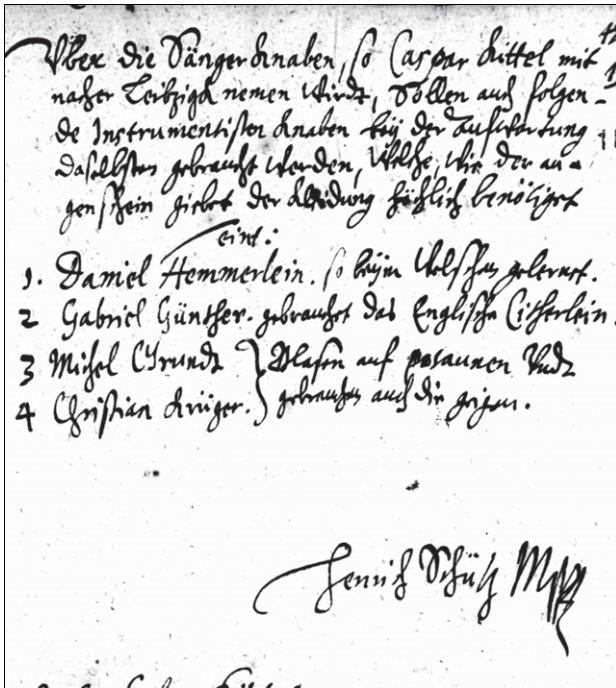 Vber die Sänger Knaben, so Caspar Kittel mit
nacher Leibzigk nemen wirdt, Sollen auch folgen-
de Instrumentisten Knaben bey der Aufwartung
daselbsten gebraucht werden, welche, wie der au-
genschein giebet der Kleidung höchlich benötiget
seint:
1. Daniel Hemmerlein. so beym Welschen gelernet.
2 Gabriel Günther. gebrauchet das Englische Citherlein.
3 Michel Grundt } Blasen auf posaunen Vndt
4 Christian Krüger. } gebrauchen auch die geigen.
Henrich Schütz Mpp